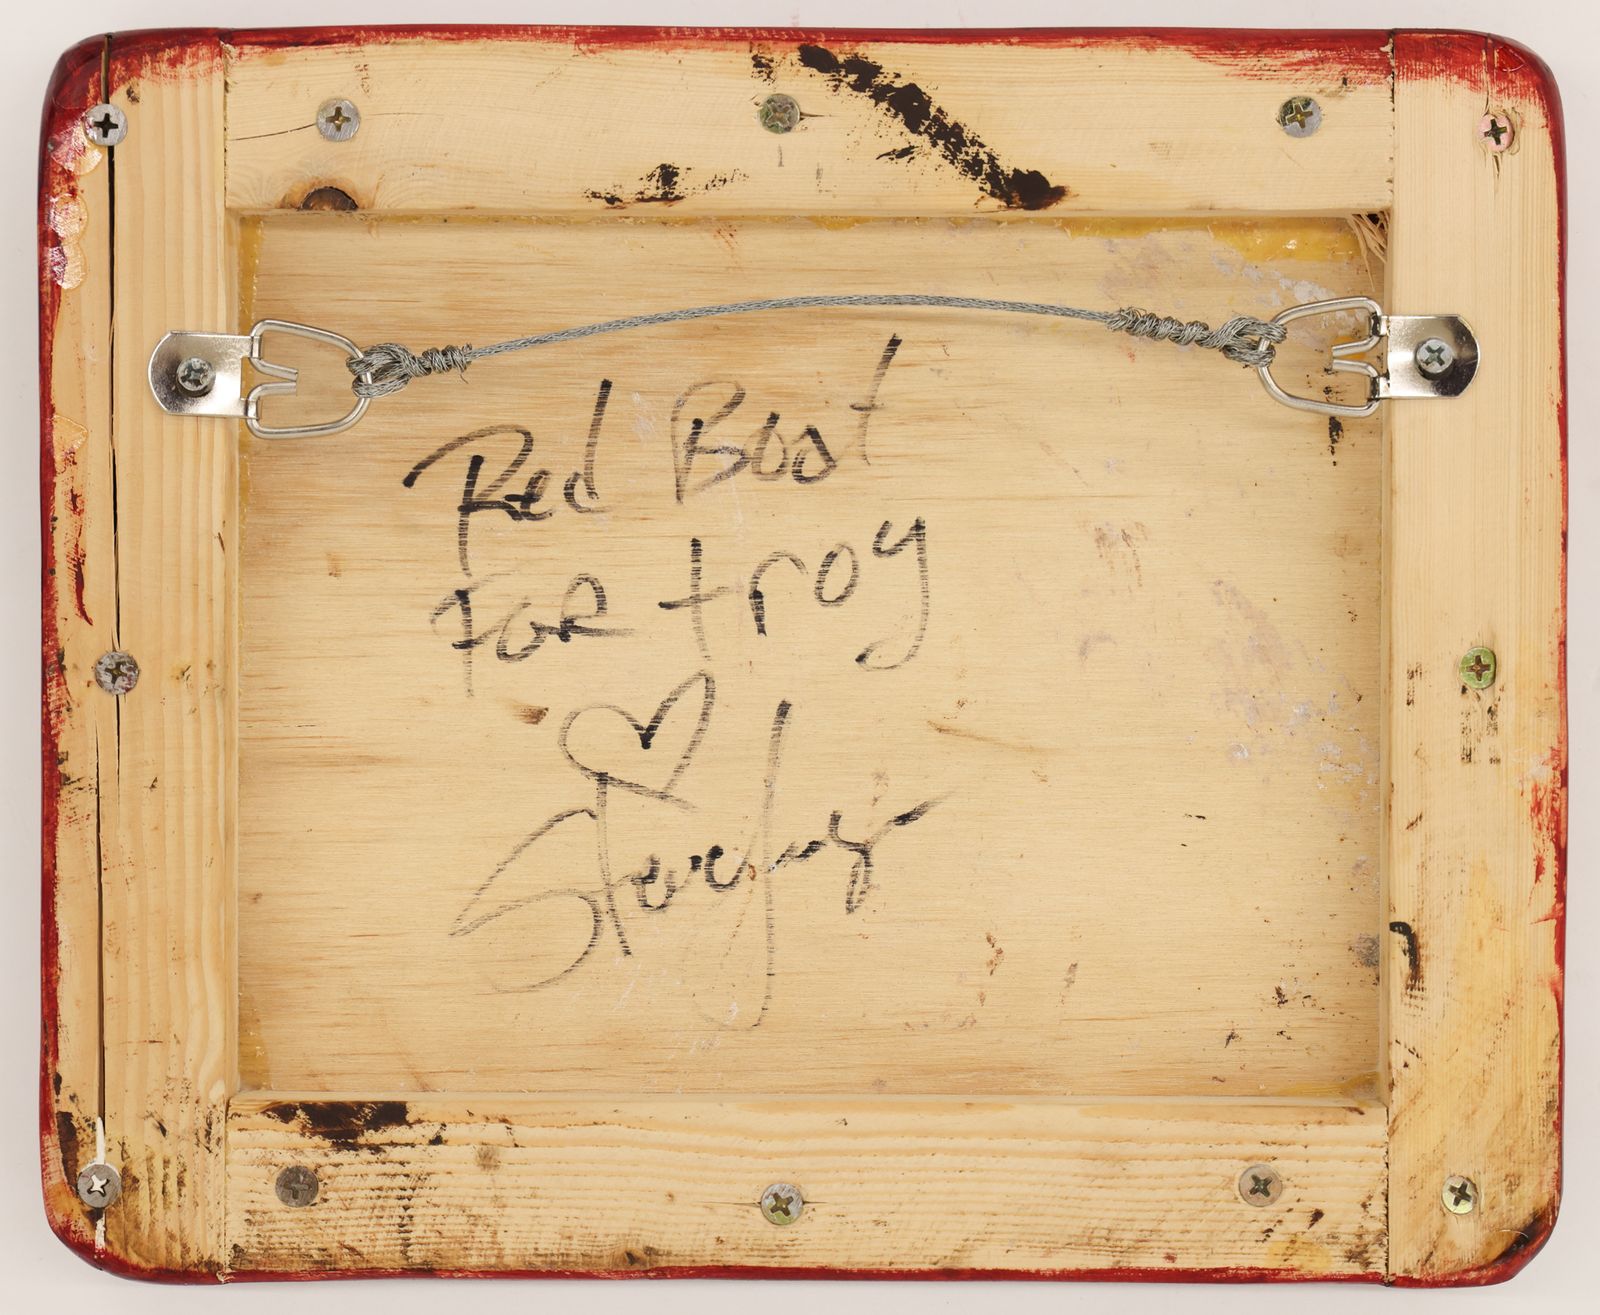 Red Boat
For troy
Steve